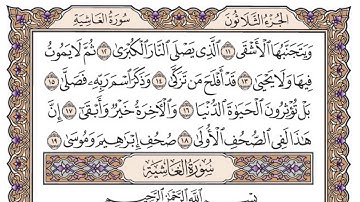 سُورَةُ الغَاشِيَةِ الجُزْءُ الثَّلَاثُونَ
وَيَتَجَنَّبُهَا ٱلْأَشْقَى ١١ ٱلَّذِى يَصْلَى ٱلنَّارَ ٱلْكُبْرَىٰ ١٢ ثُمَّ لَا يَمُوتُ
فِيهَا وَلَا يَحْيَىٰ ١٣ قَدْ أَفْلَحَ مَن تَزَكَّىٰ ١٤ وَذَكَرَ ٱسْمَ رَبِّهِۦ فَصَلَّىٰ ١٥
بَلْ تُؤْثِرُونَ ٱلْحَيَوٰةَ ٱلدُّنْيَا ١٦ وَٱلْـَٔاخِرَةُ خَيْرٌ وَأَبْقَىٰٓ ١٧ إِنَّ
هَٰذَا لَفِى ٱلصُّحُفِ ٱلْأُولَىٰ ١٨ صُحُفِ إِبْرَٰهِيمَ وَمُوسَىٰ ١٩
سُورَةُ الغَاشِيَةِ
بِسْمِ ٱللَّهِ ٱلرَّحْمَٰنِ ٱلرَّحِيمِ